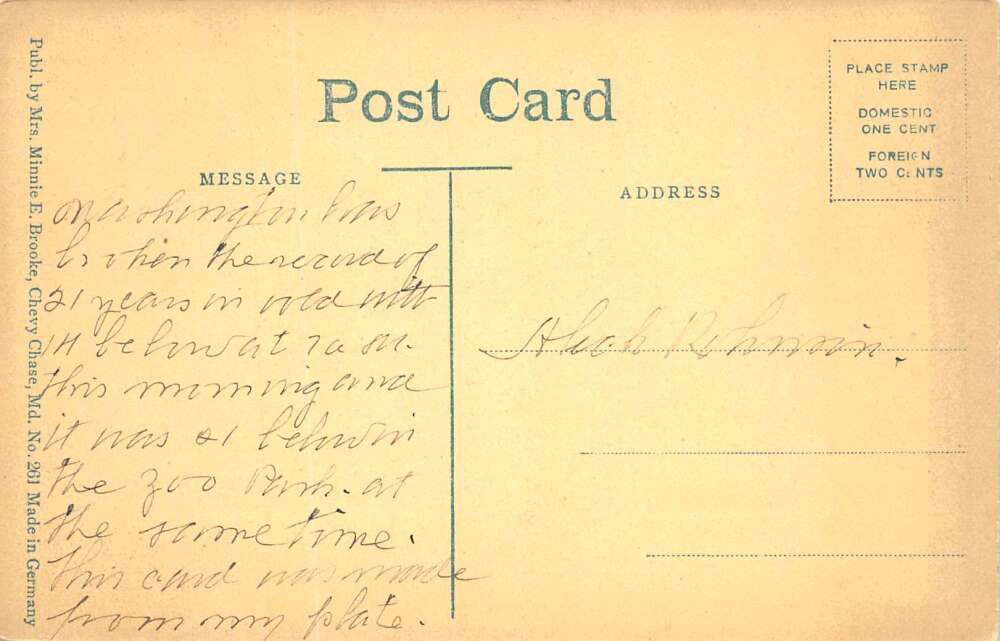 Post Card
PLACE STAMP
HERE
DOMESTIC
ONE CENT
FOREIGN
TWO CENTS
MESSAGE
ADDRESS
Publ. by Mrs. Minnie E. Brooke, Chevy Chase, Md. No. 261 Made in Germany
Washington has
broken the record of
21 years in cold with
14 below at 7 a m.
this morning and
it was 21 below in
the zoo Park. at
the same time.
This card was made
from my plate.